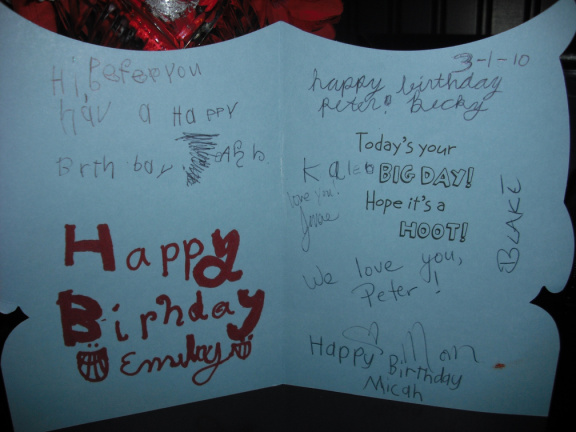 Hi, Peter you
hav a Happy
Brthbay!
Happy
Birthday
Emily
3-1-10
happy birthday
peter! Becky
Today's your
BIG DAY!
Hope it's a
HOOT!
Kaleb
love you!
BLAKE
We love you,
Peter!
Happy Birthday
Micah